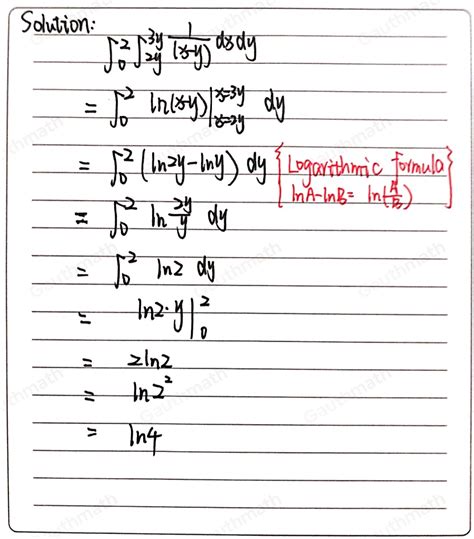 Solution:
∫₀² ∫₂ᵧ³ʸ 1/(x-y) dx dy
= ∫₀² ln(x-y)|ₓ₌₂ᵧˣ⁼³ʸ dy
= ∫₀² (ln2y-lny) dy {Logarithmic formula
lnA-lnB= ln(A/B)}
= ∫₀² ln 2y/y dy
= ∫₀² ln2 dy
= ln2·y|₀²
= 2ln2
= ln2²
= ln4